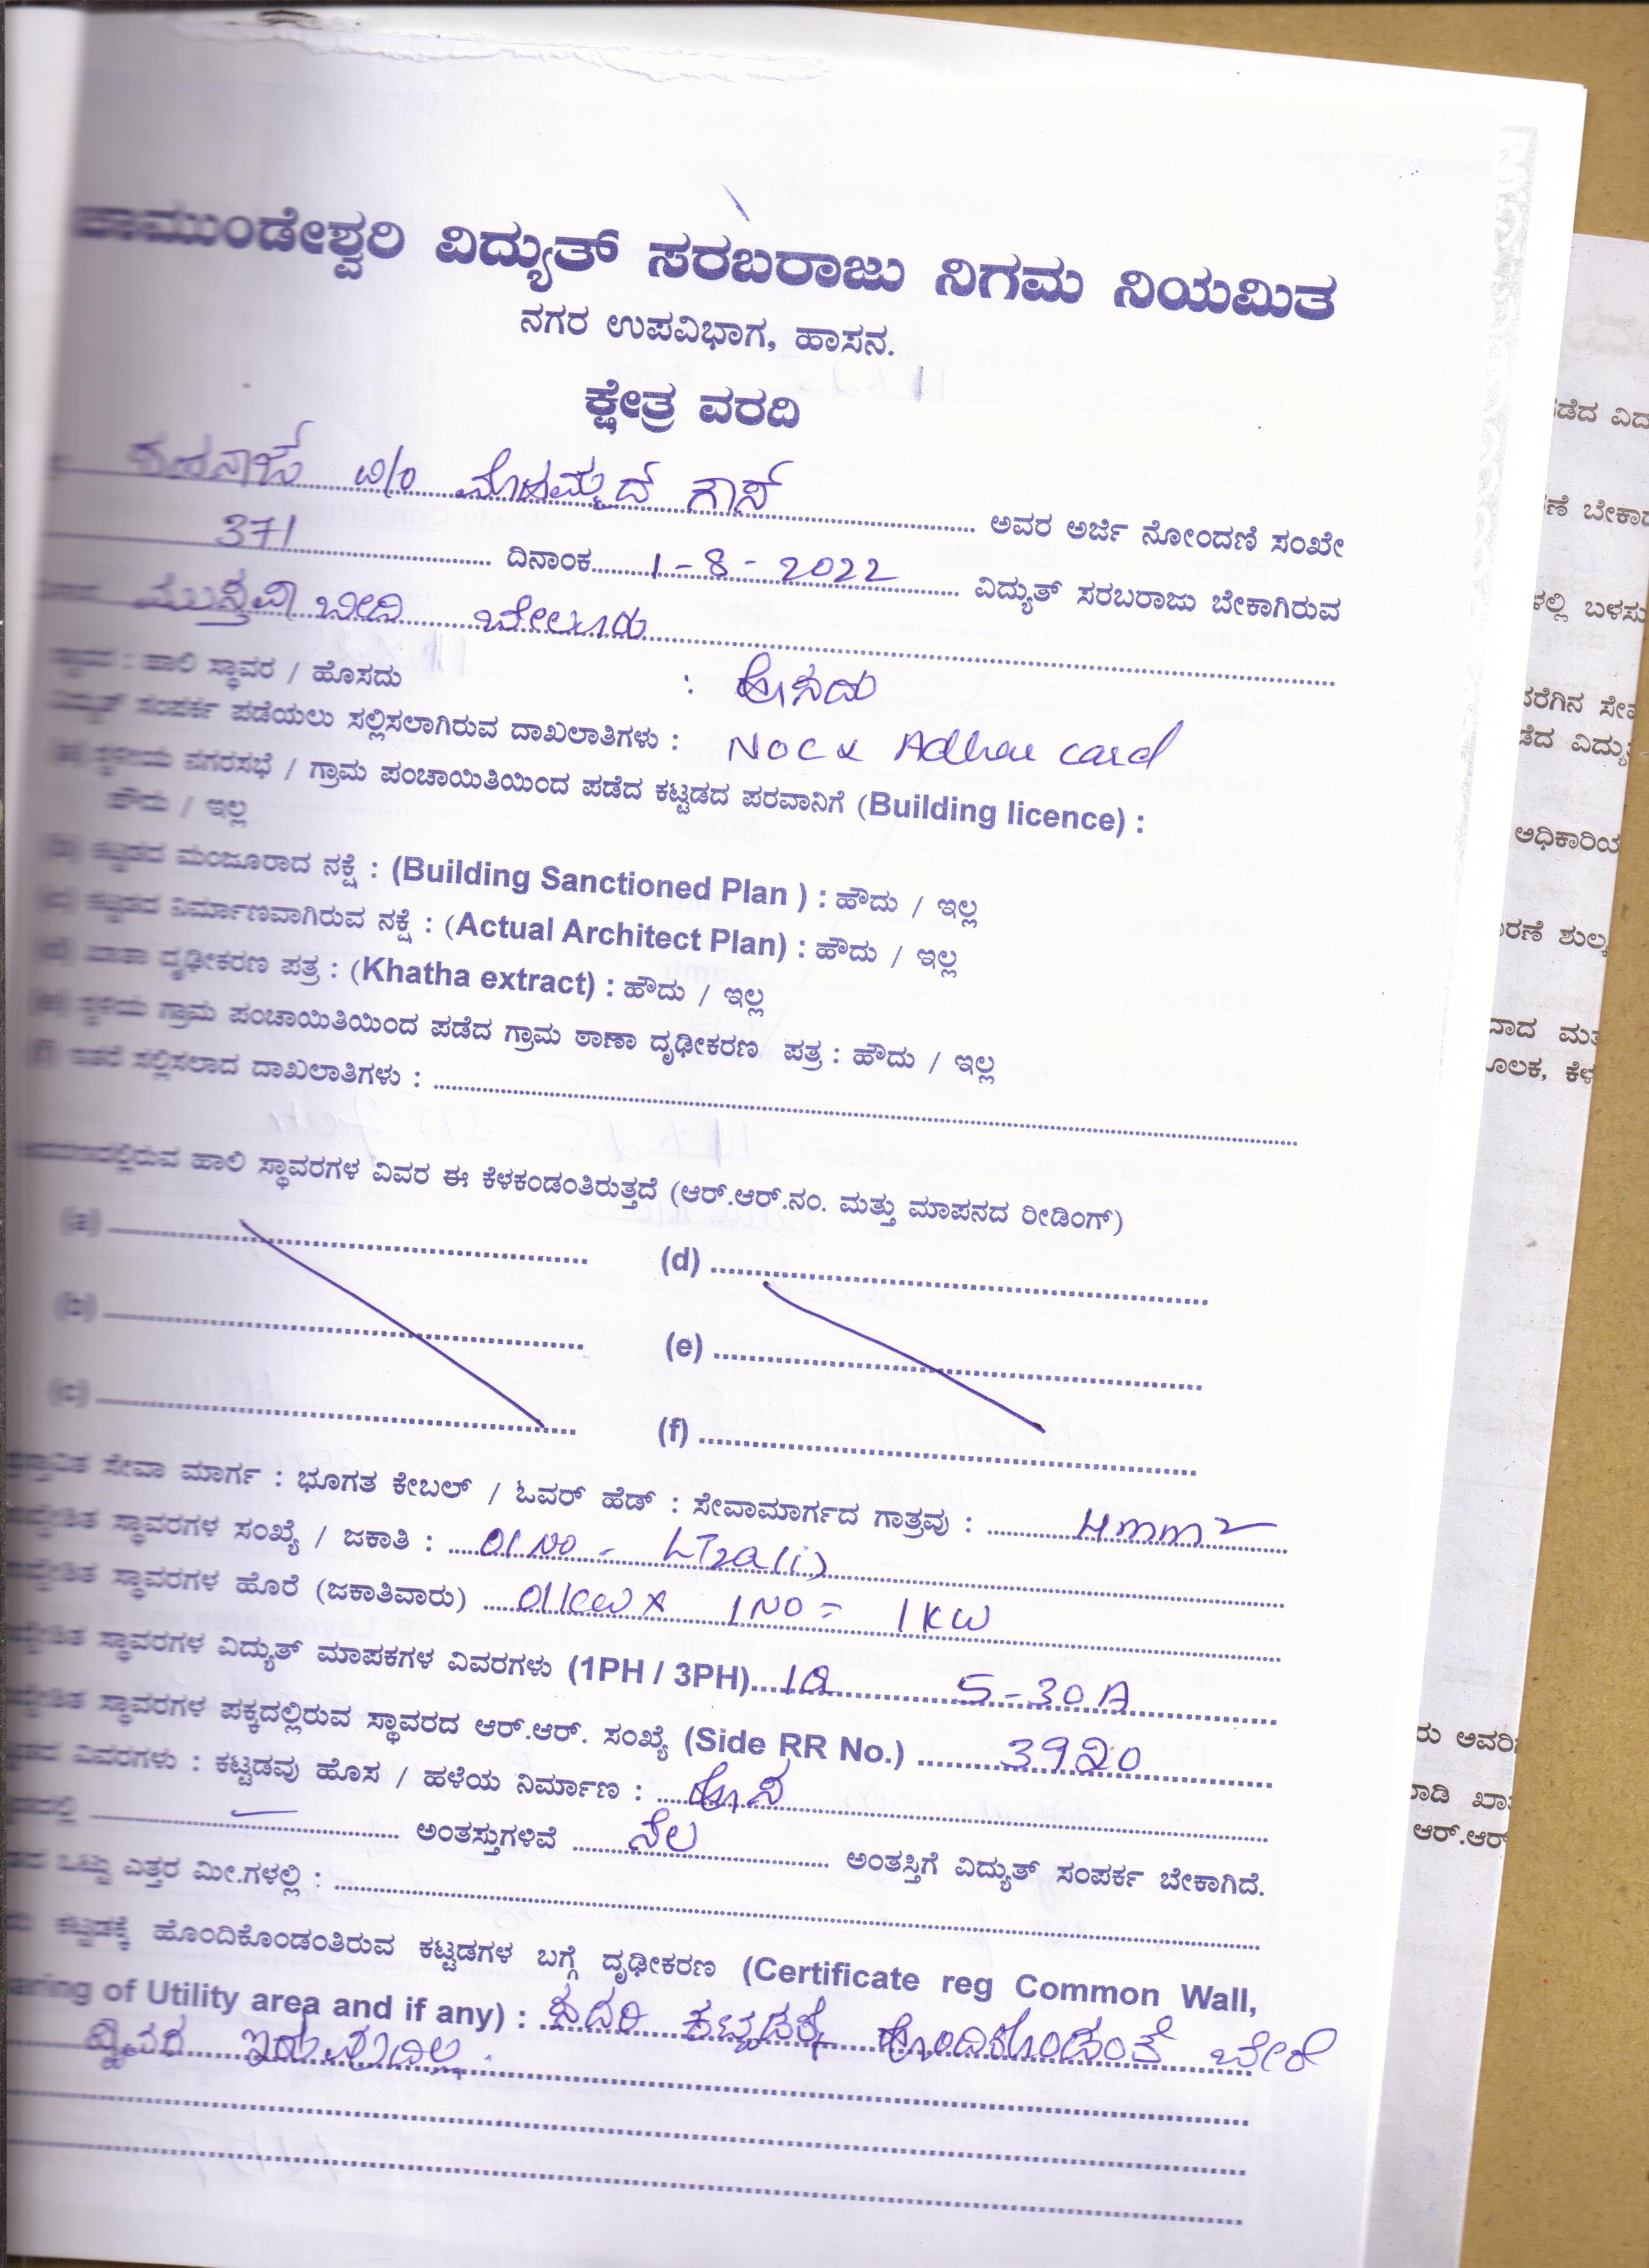 ಚಾಮುಂಡೇಶ್ವರಿ ವಿದ್ಯುತ್ ಸರಬರಾಜು ನಿಗಮ ನಿಯಮಿತ
ನಗರ ಉಪವಿಭಾಗ, ಹಾಸನ.
ಕ್ಷೇತ್ರ ವರದಿ
ಶಹನಾಜ್ W/o ಮೊಹಮ್ಮದ್ ಗೌಸ್ ಅವರ ಅರ್ಜಿ ನೋಂದಣಿ ಸಂಖೇ
371 ದಿನಾಂಕ 1-8-2022 ವಿದ್ಯುತ್ ಸರಬರಾಜು ಬೇಕಾಗಿರುವ
ಬೀದಿ ಬೇಲೂರು
ಸ್ಥಾವರ : ಹಾಲಿ ಸ್ಥಾವರ / ಹೊಸದು : ಹೊಸದು
ವಿದ್ಯುತ್ ಸಂಪರ್ಕ ಪಡೆಯಲು ಸಲ್ಲಿಸಲಾಗಿರುವ ದಾಖಲಾತಿಗಳು : NOC & Adhar card
(a) ಸ್ಥಳೀಯ ನಗರಸಭೆ / ಗ್ರಾಮ ಪಂಚಾಯಿತಿಯಿಂದ ಪಡೆದ ಕಟ್ಟಡದ ಪರವಾನಿಗೆ (Building licence) :
ಹೌದು / ಇಲ್ಲ
(b) ಕಟ್ಟಡದ ಮಂಜೂರಾದ ನಕ್ಷೆ : (Building Sanctioned Plan ) : ಹೌದು / ಇಲ್ಲ
(c) ಕಟ್ಟಡದ ನಿರ್ಮಾಣವಾಗಿರುವ ನಕ್ಷೆ : (Actual Architect Plan) : ಹೌದು / ಇಲ್ಲ
(d) ಖಾತಾ ದೃಢೀಕರಣ ಪತ್ರ : (Khatha extract) : ಹೌದು / ಇಲ್ಲ
(e) ಸ್ಥಳಿಯ ಗ್ರಾಮ ಪಂಚಾಯಿತಿಯಿಂದ ಪಡೆದ ಗ್ರಾಮ ಠಾಣಾ ದೃಢೀಕರಣ ಪತ್ರ : ಹೌದು / ಇಲ್ಲ
(f) ಇತರೆ ಸಲ್ಲಿಸಲಾದ ದಾಖಲಾತಿಗಳು :
ಹಾಲಿ ಸ್ಥಾವರಗಳ ವಿವರ ಈ ಕೆಳಕಂಡಂತಿರುತ್ತದೆ (ಆರ್.ಆರ್.ನಂ. ಮತ್ತು ಮಾಪನದ ರೀಡಿಂಗ್)
(a) (d)
(b) (e)
(c) (f)
ಸೇವಾ ಮಾರ್ಗ : ಭೂಗತ ಕೇಬಲ್ / ಓವರ್ ಹೆಡ್ : ಸೇವಾಮಾರ್ಗದ ಗಾತ್ರವು : 4mm2
ಸ್ಥಾವರಗಳ ಸಂಖ್ಯೆ / ಜಕಾತಿ : 01 NO - LT2a(i)
ಸ್ಥಾವರಗಳ ಹೊರೆ (ಜಕಾತಿವಾರು) 01KW X 1NO = 1KW
ಸ್ಥಾವರಗಳ ವಿದ್ಯುತ್ ಮಾಪಕಗಳ ವಿವರಗಳು (1PH / 3PH) 1Ø 5-30A
ಸ್ಥಾವರಗಳ ಪಕ್ಕದಲ್ಲಿರುವ ಸ್ಥಾವರದ ಆರ್.ಆರ್. ಸಂಖ್ಯೆ (Side RR No.) 3920
ವಿವರಗಳು : ಕಟ್ಟಡವು ಹೊಸ / ಹಳೆಯ ನಿರ್ಮಾಣ : ಹೊಸ
ಅಂತಸ್ತುಗಳಿವೆ ನೆಲ ಅಂತಸ್ತಿಗೆ ವಿದ್ಯುತ್ ಸಂಪರ್ಕ ಬೇಕಾಗಿದೆ.
ಒಟ್ಟು ಎತ್ತರ ಮೀ.ಗಳಲ್ಲಿ :
ಕಟ್ಟಡಕ್ಕೆ ಹೊಂದಿಕೊಂಡಂತಿರುವ ಕಟ್ಟಡಗಳ ಬಗ್ಗೆ ದೃಢೀಕರಣ (Certificate reg Common Wall,
aring of Utility area and if any) : ಸದರಿ ಕಟ್ಟಡಕ್ಕೆ ಹೊಂದಿಕೊಂಡಂತೆ ಬೇರೆ
ಸ್ಥಾವರ ಇರುವುದಿಲ್ಲ.